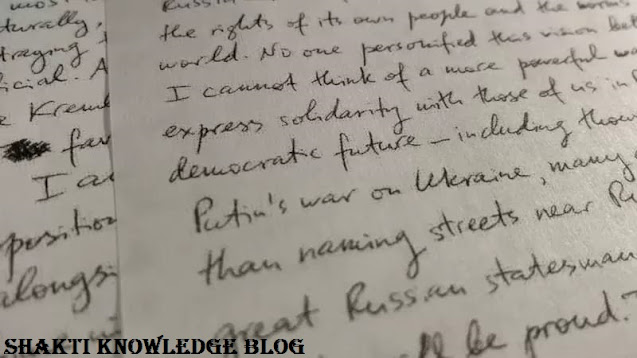 most
turally,
traying
icial. A
Kreml
far
I a
position
alongsi
Russia
the rights of its own people and the norms
world. No one personified this vision bet
I cannot think of a more powerful w
express solidarity with those of us in
democratic future – including thou
Putin's war on Ukraine, many
than naming streets near Ru
great Russian statesman
be proud.
SHAKTI KNOWLEDGE BLOG